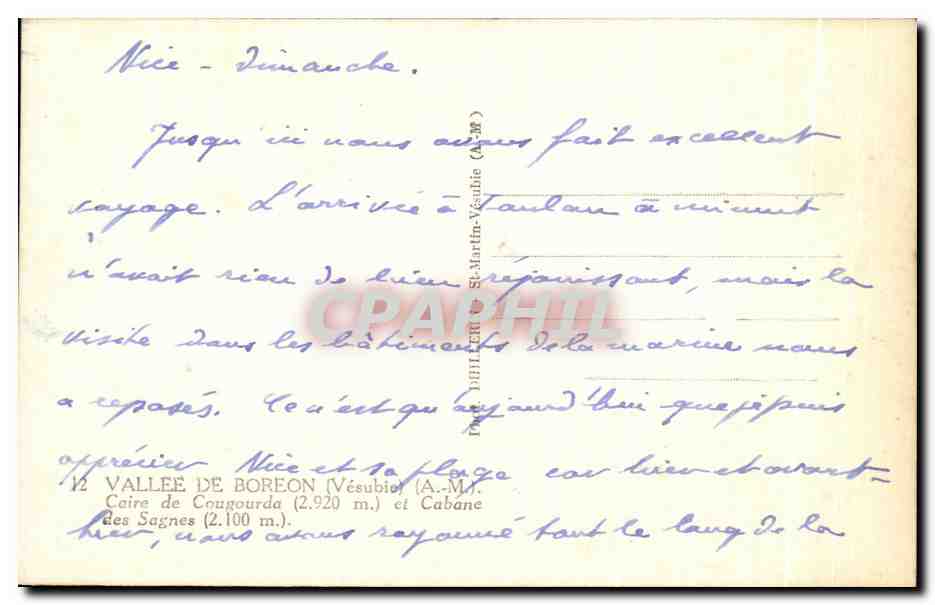 Nice - Dimanche.
Jusqu'ici nous avons fait excellent
voyage. L'arrivée à Toulon à minuit
n'avait rien de bien réjouissant, mais la
visite dans les bâtiments de la marine nous
a reposés. Ce n'est qu'aujourd'hui que je puis
apprécier Nice et sa plage car hier et avant-
hier, nous avons rayonné tout le long de la
12 VALLEE DE BOREON (Vésubie) (A.-M.).
Caire de Cougourda (2.920 m.) et Cabane
des Sagnes (2.100 m.).
St-Martin-Vésubie (A.-M)
CPAPHIL